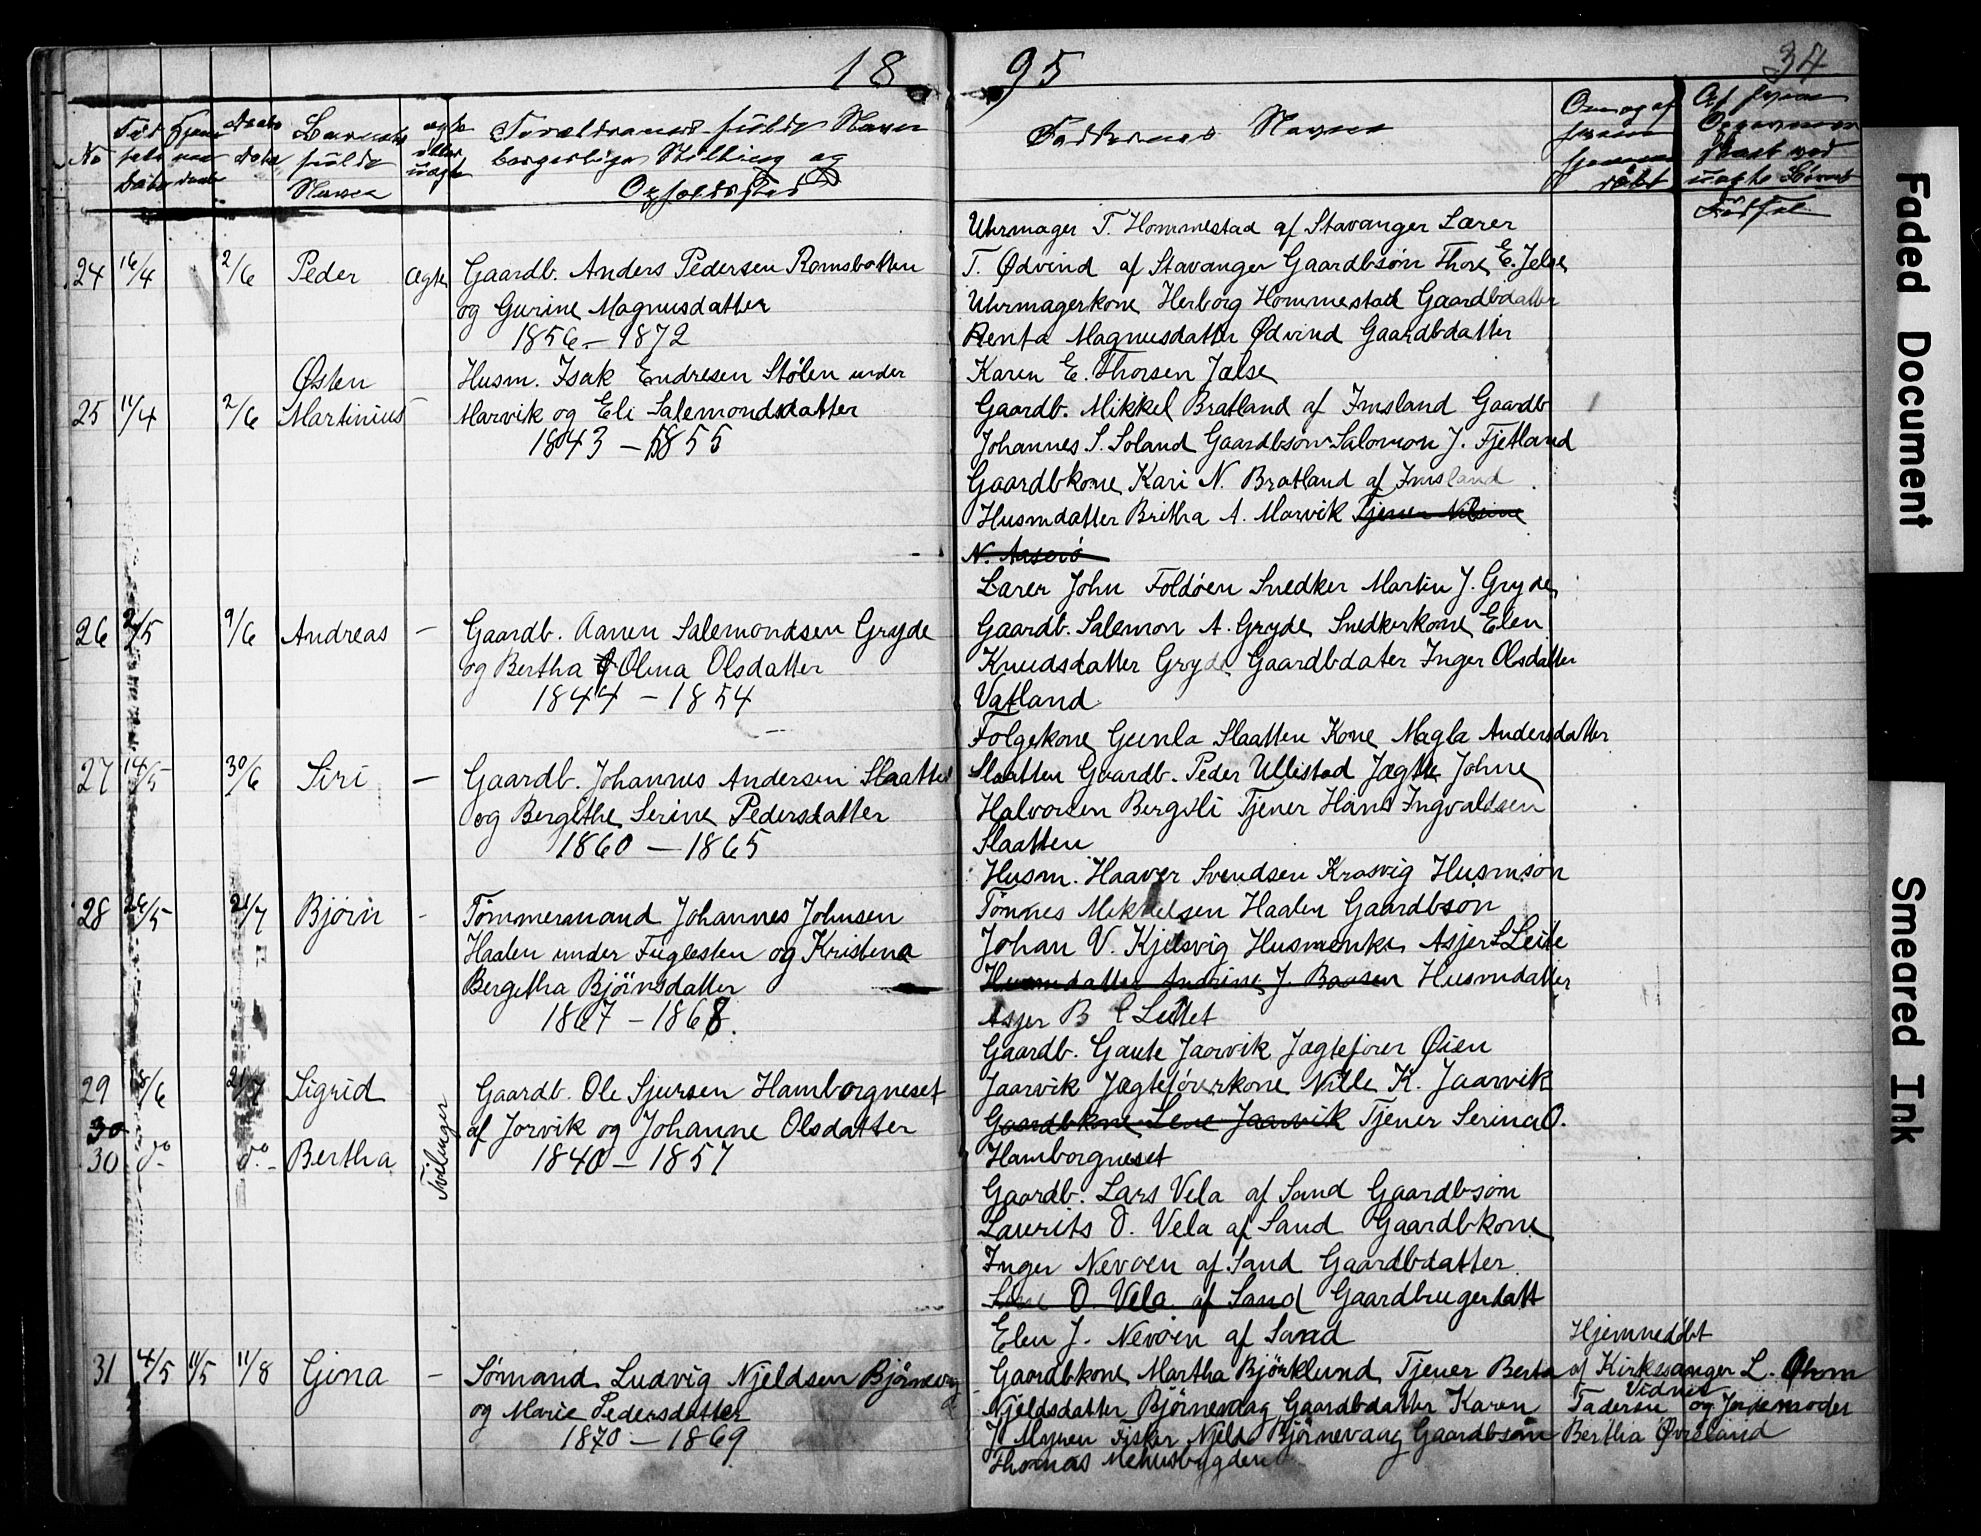 1895
34
No
Barnets
fulde
Navn
ægte
eller
uægte
Forældrenes fulde Navn
borgerlige Stilling og
Opholdssted
Faddernes Navne
24 16/4 2/6 Peder Ægte Gaardb. Anders Pedersen Ramsbotten
og Gurine Magnusdatter
1856 - 1872
Uhrmager T. Hommestad af Stavanger Lærer
T. Ødvind af Stavanger Gaardbsøn Thore E. Jelse
Uhrmagerkone Herborg Hommestad Gaardbdatter
Renta Magnusdatter Ødvind Gaardbdatter
Karen E. Thorsen Jælse
25 11/4 2/6 Østen
Martinius - Husm. Isak Endresen Stølen under
Marvik og Eli Salemondsdatter
1843 - 1855
Gaardb. Mikkel Bratland af Imsland Gaardb
Johannes S. Soland Gaardbsøn Salomon J. Fjetland
Gaardbkone Kari N. Bratland af Imsland
Husmdatter Britha A. Marvik Tjener Nilsine
N. Aaserö
26 2/5 9/6 Andreas - Gaardb. Aanen Salemondsen Gryde
og Bertha Olina Olsdatter
1844 - 1854
Lærer John Foldøen Snedker Martin J. Gryde
Gaardb. Salemon A. Gryde Snedkerkone Elen
Knudsdatter Gryde Gaardbdater Inger Olsdatter
Vatland
27 14/5 30/6 Siri - Gaardb. Johannes Andersen Slaatten
og Bergithe Serine Pedersdatter
1860 - 1865
Folgekone Gunla Slaatten Kone Magla Andersdatter
Slaatten Gaardb. Peder Ullistad Jægte Johne
Halvorsen Bergsli Tjener Hans Ingvaldsen
Slaatten
28 26/5 21/7 Bjørn - Tømmermand Johannes Johnsen
Haalen under Fuglesten og Kristena
Bergetha Bjørnsdatter
1867 - 1868.
Husm. Haaver Svendsen Krosvig Husmsøn
Tönnes Mikkelsen Haalen Gaardbsøn
Johan V. Kjilsvig Husmenke Asjer L Leite
Husmdatter Andrine J. Baasen Husmdatter
Asjer B
29 8/6 21/7 Sigrid
30
30 do do Bertha
Tvilinger
Gaardb. Ole Sjursen Hamborgneset
af Jorvik og Johanne Olsdatter
1840 - 1857
Gaardb. Gaute Jaarvik Jægtefører Øien
Jaarvik Jægteførerkone Nille K. Jaarvik
Gaardbkone Lene Jaarvik Tjener Serina O.
Hamborgneset
Gaardb. Lars Vela af Sand Gaardbsøn
Laurits O. Vela af Sand Gaardbkone
Inger Nevøen af Sand Gaardbdatter
O. Vela af Sand Gaardbrugerdatt
Elen J. Nevøen af Sand
31 4/5 11/5 11/8 Gina - Sømand Ludvig Njeldsen Bjørnevaag
og Marie Pedersdatter
1870 - 1869
Gaardbkone Martha Björklund Tjener Berta
Njeldsdatter Bjørnevaag Gaardbdatter Karen
J. Myren Fisker Njeld Bjørnevaag Gaardbsøn
Thomas Mehusbygden
Hjemmedøbt
af Kirkesanger L. Øhrn
Vidner
Faderen og Jordemoder
Bertha Øvreland
Faded Document
Smeared Ink